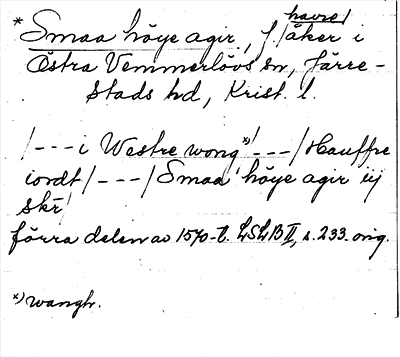 * Smaa höye agir, f. havre/åker i
Östra Vemmerlövs sn, Järre-
stads hd, Krist. l.
/---i Westre wong *)/---/Hauffre
iordt/---/Smaa höye agir iij
skr̄/
förra delen av 1570-t. LSLB II, s. 233. orig.
*) wangh.